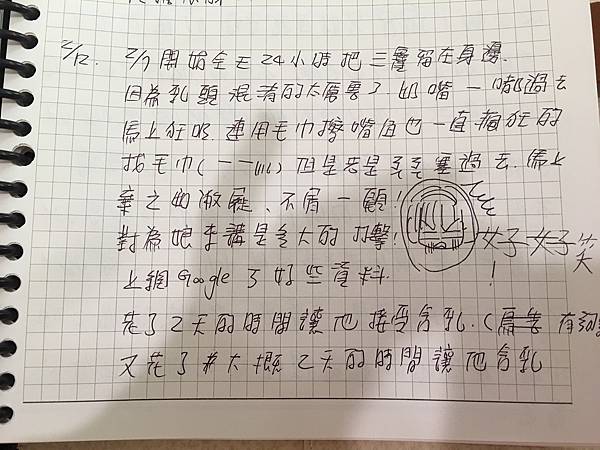 2/12. 2/7開始全天24小時把三寶留在身邊.
因為乳頭混淆的太厲害了.奶嘴一嘟過去
馬上狂吸 連用毛巾擦嘴角也一直瘋狂的
找毛巾(一一lll) 但是若是ㄋㄟㄋㄟ塞過去.馬上
棄之如敝屣、不屑一顧!
對為娘來講是多大的打擊! 好好笑!
上網Google了好些資料.
花了2天的時間讓他接受含乳.(
又花了大概2天的時間讓他含乳